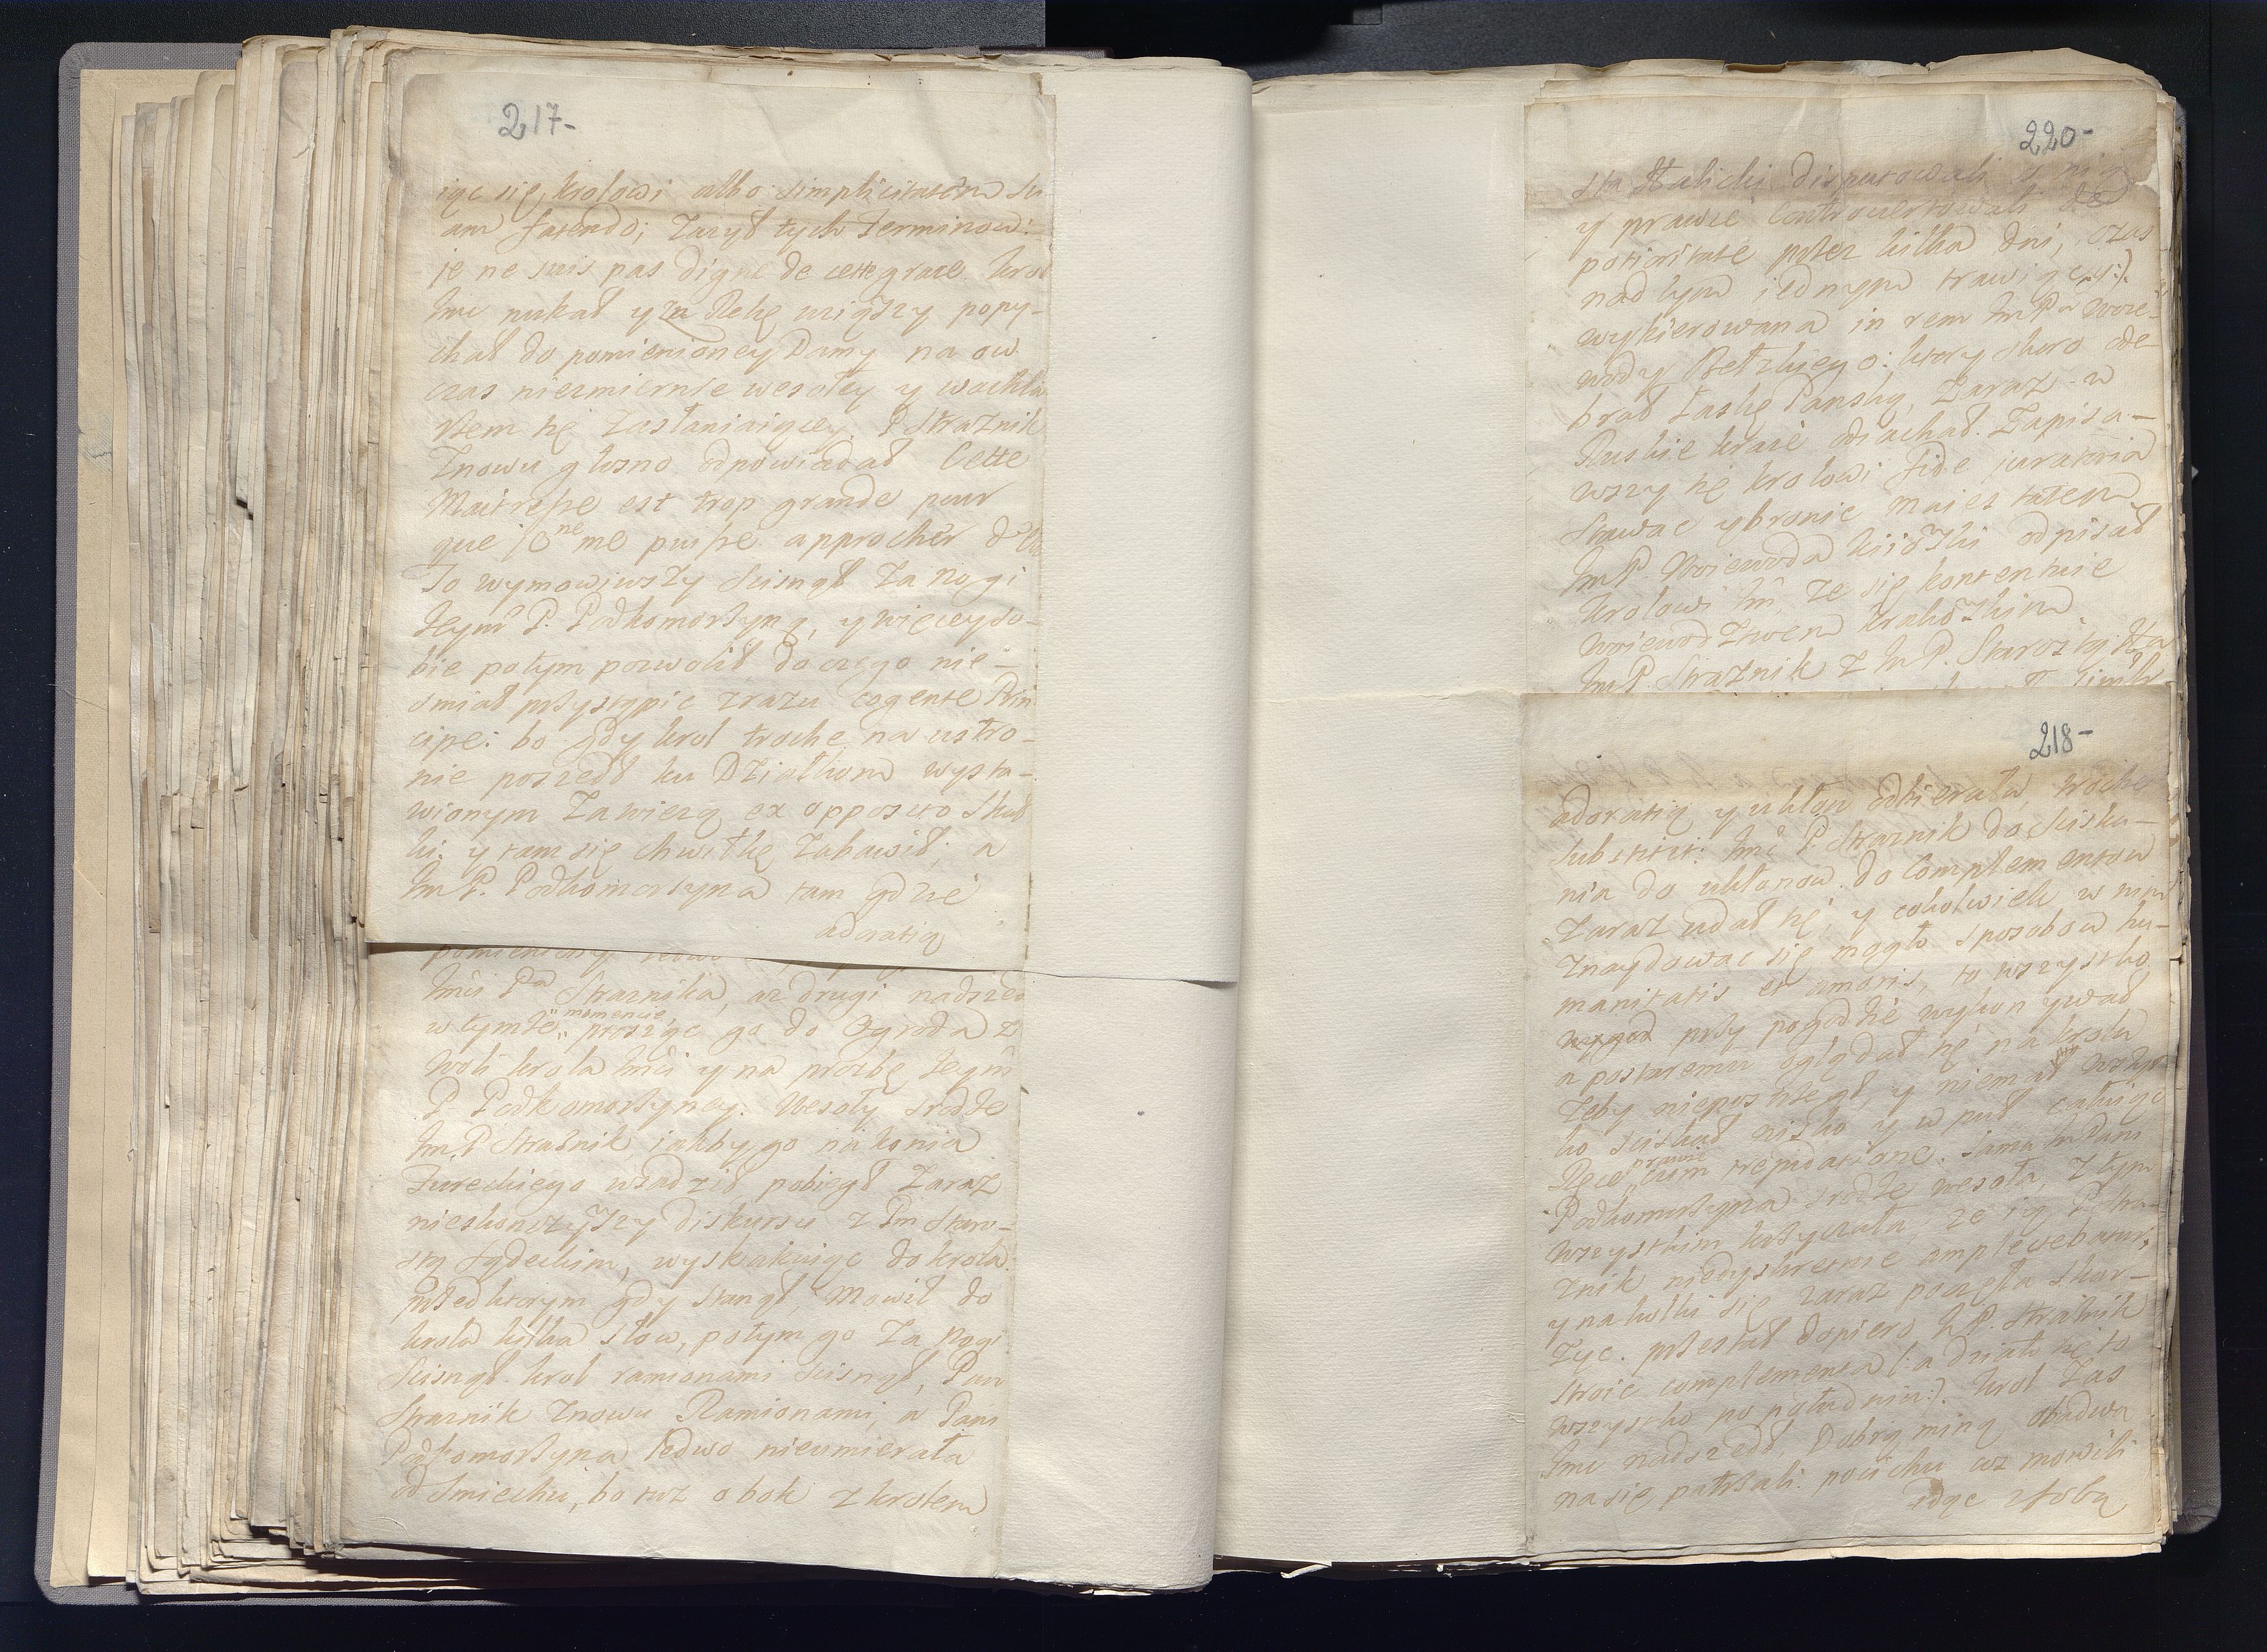 217-
iąc się krolowi albo simplicitatem su
am fatendo; Zazył tych Terminow:
je ne suis pas digne de cette grace. krol
Imc nukał y za Rekę wziąszy popy-
chał do pomienioney Damy na ow
czas niezmiernie wesołey y wachla
rzem się Zasłaniaiącey. P Straznik
Znowu głosno odpowiadał Cette
Maitresse est trop grande pour
que je ne me puisse approcher d'Elle
To wymowiwszy scisnął Za nogi
teym P. Podkomorzyną, y więcey so-
bie potym pozwolił do czego nie-
smiał przystąpic zrazu cogente Prin
cipe: bo gdy krol troche na ustro-
nie poszedł ku Działkom wysta-
wionym Za wiezą ex opposito Szkut
ki. y tam się chwilkę Zabawił, a
Im P. Podkomorzyna tam gdzie
adoratią
pomieniony
Imci Pa Straznika, az drugi nadszed
w tymze momencie prosząc go do Ogroda z
woli krola Imci y na prozbę teym
P. Podkomorzyney. Wesoły srodze
Im P Straznik, iakby go na konia
Tureckiego wsadził, pobiegł Zaraz
nieskonczywszy diskursu z Pm Staro-
stą Sądeckim, wyskakuiąc do krola.
przed ktorym gdy stanął, Mowił do
krola kilka słow, potym go Za Nogi
Scisnął. krol ramionami scisnął, Pan
Straznik Znowu Ramionami, a Pani
Podkomorzyna ledwo nieumierała
od Smiechu, bo tuz obok z krolem
220-
sta Halicki disputowali z nią
y prawie Controvertowali de
potioritate przez kilka dni, czas
nad tym iednym trawiący:).
wykierowana in rem Im Pa Woie-
wody Bełzkiego: ktory skoro ode
brał Łaskę Panską, Zaraz w
Ruskie kraie odiachał. Zapisa-
wszy się krolowi fide juratoria
Stawac y bronic Maiestatem
Im P. Woiewoda kiiowski odpisał
krolowi Im, ze się kontentuie
Woiewodztwem krakowskim
Im P. Straznik z Im P. Starostą Ha
218-
adoratią y ukłon odbierała, troche
substitit. Imc P. Straznik do sciska-
nia do ukłonow. do Complementow
Zaraz udał się, y cokolwiek w nim
Znaydowac się mogło sposobow hu-
manitatis et amoris, to wszystko
przy pogodzie wykonywał
a postaremu oglądał się na krola
Zeby niepostrzegł, y niemal wszyst
ko sciskał nisko y w puł całuiąc
Ręce, prawie cum trepidatione. Sama Im Pani
Podkomorzyna srodze wesoła, z tym
wszystkim krzyczała, ze ią P. Stra-
znik niedyskretnie amplectebatur,
y na kolki się zaraz poczęła skar-
zyc. przestał dopiero Im P. Straznik
stroic complementa (:a działo się to
wszystko po południu:). krol Zas
Imc nadszedł, Dobrą miną obadwa
na się patrzali: pocichu cos mowili
idąc z sobą